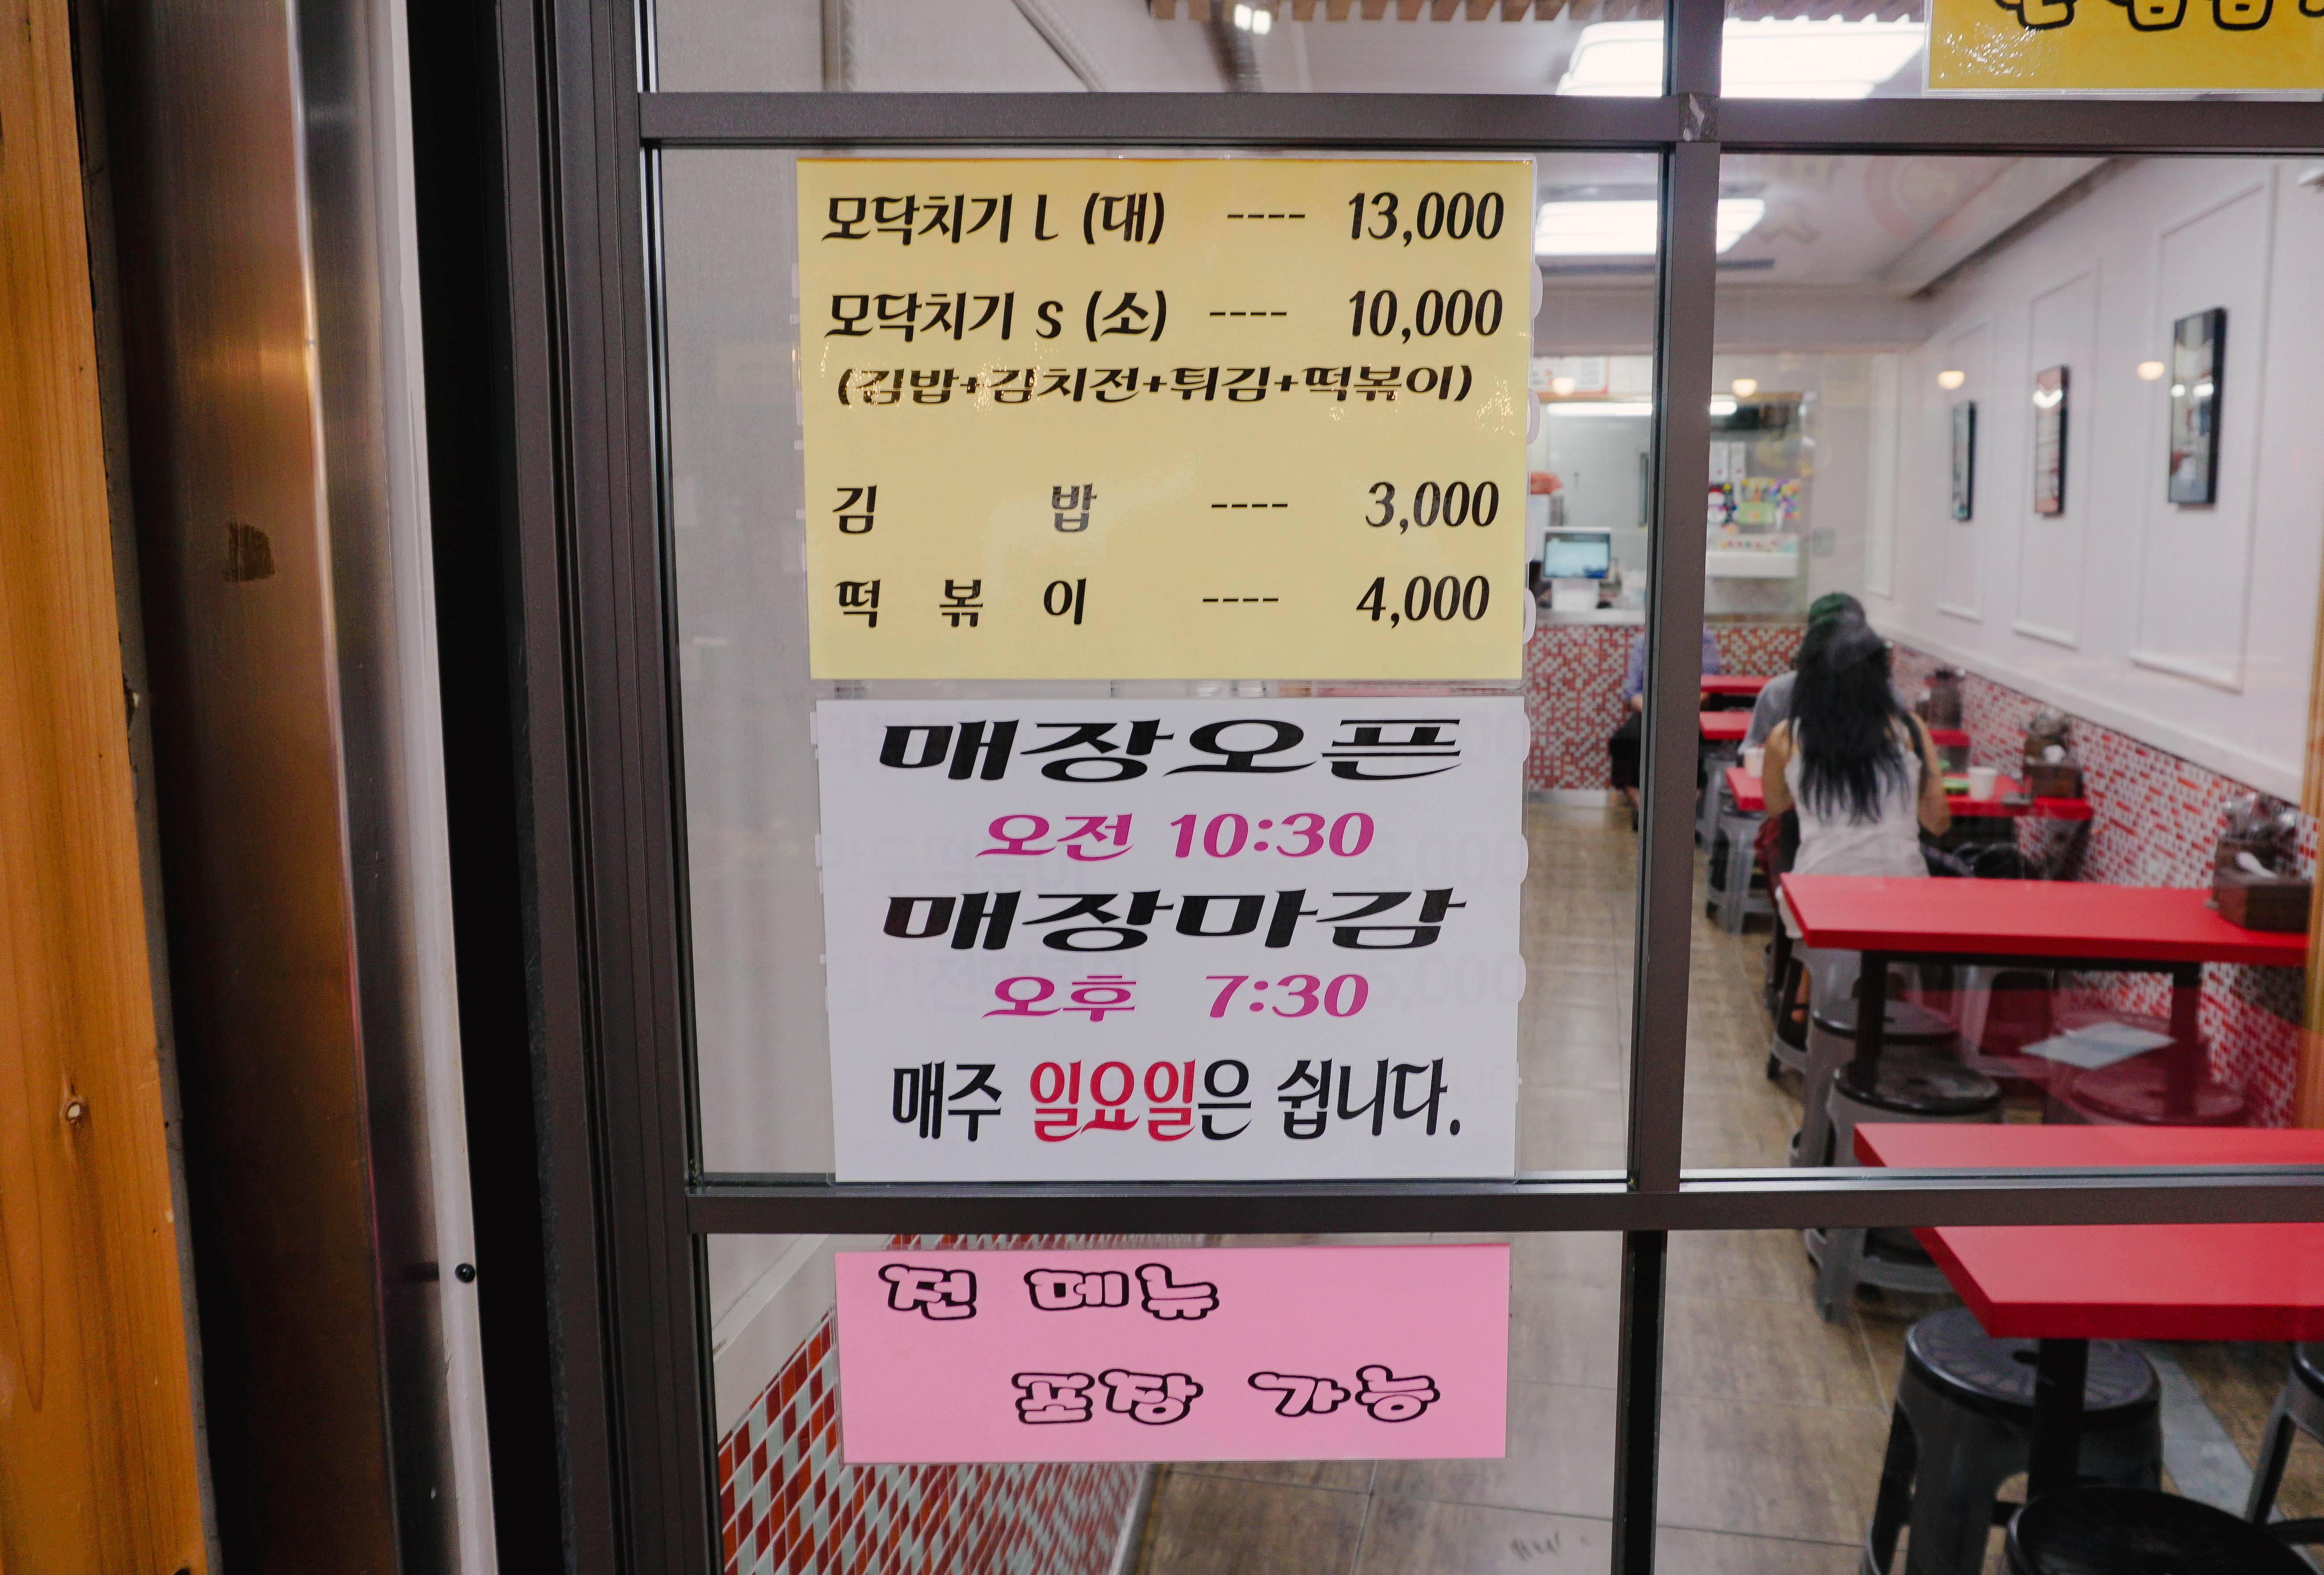 모닥치기 L (대) ---- 13,000
모닥치기 s (소) ---- 10,000
(김밥+김치전+튀김+떡볶이)
김 밥 ---- 3,000
떡 볶 이 ---- 4,000
매장오픈
오전 10:30
매장마감
오후 7:30
매주 일요일은 쉽니다.
전 메뉴
포장 가능